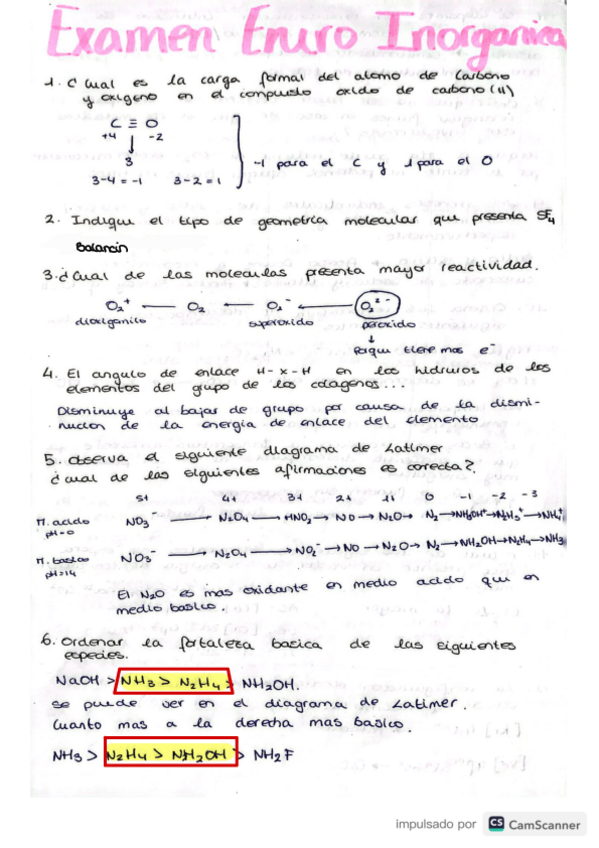 Examen Enero Inorganica
1. ¿Cual es la carga formal del atomo de carbono
y oxigeno en el compuesto oxido de carbono (II)
C ≡ O
+4 -2
3
3-4 = -1 3-2 = 1
-1 para el C y 1 para el O
2. Indique el tipo de geometria molecular que presenta SF4
Balancin
3. ¿Cual de las moleculas presenta mayor reactividad.
O2+ ← O2 ← O2- ← O2 2-
dioxigenilo superoxido peroxido
↓
Porque tiene mas e-
4. El angulo de enlace H-X-H en los hidruros de los
elementos del grupo de los calogenos...
Disminuye al bajar de grupo por causa de la dismi-
nucion de la energia de enlace del elemento
5. Observa el siguiente diagrama de Latimer
¿cual de las siguientes afirmaciones es correcta?.
5+ 4+ 3+ 2+ 1+ 0 -1 -2 -3
M. acido
pH=0
NO3- → N2O4 → HNO2 → NO → N2O → N2 → NH3OH+ → N2H5+ → NH4+
M. basico
pH=14
NO3- → N2O4 → NO2- → NO → N2O → N2 → NH2OH → N2H4 → NH3
El N2O es mas oxidante en medio acido que en
medio basico.
6. Ordenar la fortaleza basica de las siguientes
especies.
NaOH > NH3 > N2H4 > NH2OH.
se puede ver en el diagrama de Latimer.
Cuanto mas a la derecha mas basico.
NH3 > N2H4 > NH2OH > NH2F
impulsado por CS CamScanner